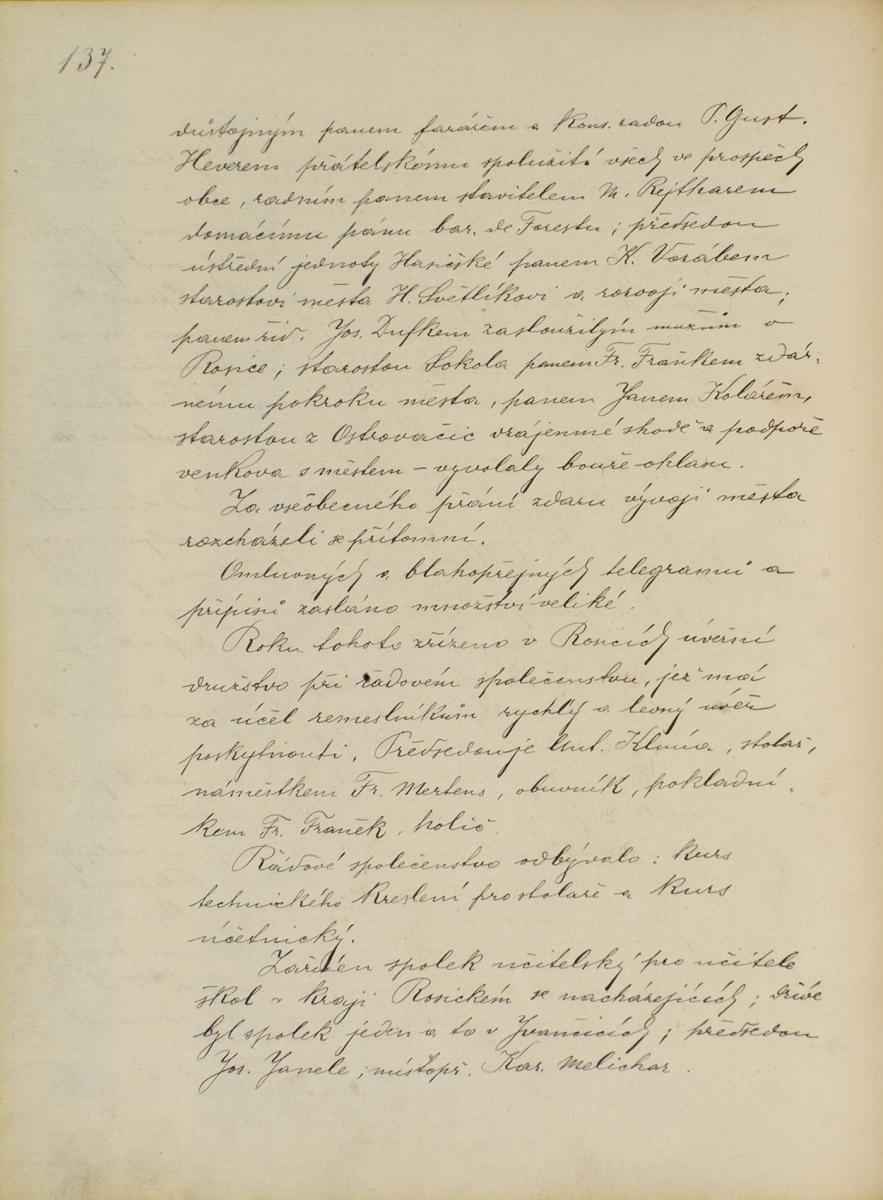 137.
důstojným panem farářem a kons. radou P. Gust.
Heverem přátelskému spolužití všech ve prospěch
obce, radním panem stavitelem M. Rejtharem
domácímu pánu bar. de Forestu; předsedou
ústřední jednoty Hasičské panem K. Vorábem
starostovi města H. Světlíkovi a rozvoji města;
panem řid. Jos. Dufkem zasloužilým mužům o
Rosice; starostou Sokola panem Fr. Fraňkem zdár-
nému pokroku města, panem Janem Kolářem,
starostou z Ostrovačic vzájemné shodě a podpoře
venkova s městem – vyvolaly bouře ohlasu.
Za všeobecného přání zdaru vývoji města
rozcházeli se přítomní.
Omluvných a blahopřejných telegramů a
přípisů zasláno množství veliké.
Roku tohoto zřízeno v Rosicích úvěrní
družstvo při řádovém společenstvu, jež má
za účel remeslníkům rychlý a levný úvěr
poskytnouti. Předsedou je Ant. Klíma, stolař,
náměstkem Fr. Mertens, obuvník, pokladní-
kem Fr. Franěk, holič.
Řádové společenstvo odbývalo: kurs
technického kreslení pro stolaře a kurs
účetnický.
Zařízen spolek učitelský pro učitele
škol v kraji Rosickém se nacházejících; dříve
byl spolek jeden a to v Ivančicích; předsedou
Jos. Janele; místopř. Kar. Melichar.